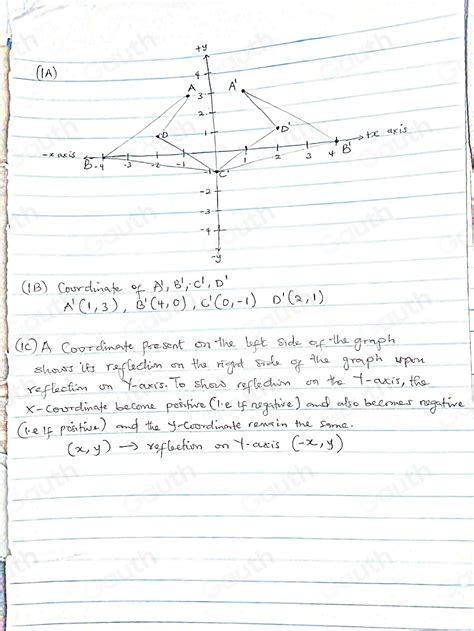 (1A)
+y
4
A
3
A'
2
D
1
D'
+x axis
-x axis
B -4 -3 -2 -1
C'
1 2 3 4 B'
-2
-3
-4
-y
(1B) Coordinate of A', B', C', D'
A'(1,3), B'(4,0), C'(0,-1) D'(2,1)
(1C) A Coordinate present on the left side of the graph
shows its reflection on the right side of the graph upon
reflection on Y-axis. To show reflection on the Y-axis, the
x-coordinate become positive (i.e if negative) and also becomes negative
(i.e if positive) and the y-coordinate remain the same.
(x,y) → reflection on Y-axis (-x,y)
Gauth